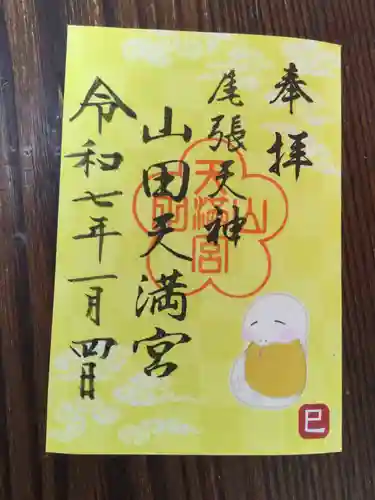 奉拝
尾張天神
山田天満宮
令和七年一月四日
天満宮
山
巳